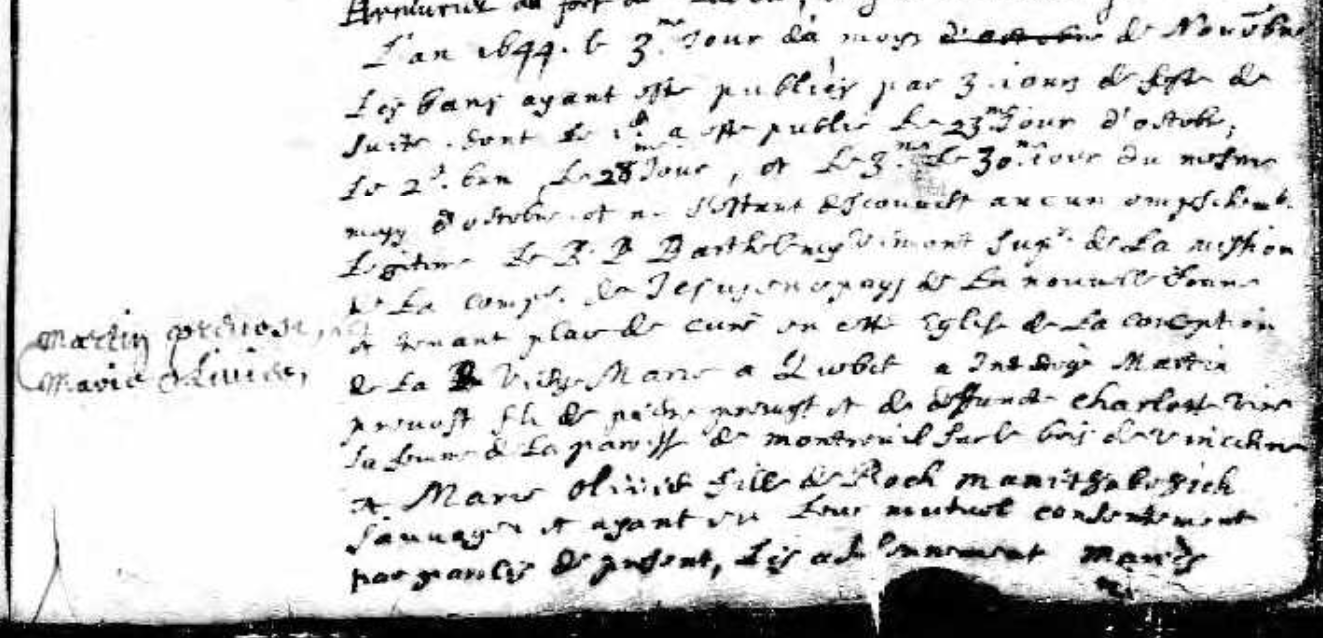 L'an 1644. le 3.me Jour du moys d'octobre de Novembre
Les bans ayant esté publiés par 3. iours de feste de
suite. dont le 1.er a esté publié le 23.me Jour d'octobre,
Le 2d. ban, le 28me Jour, et le 3.me le 30.me iour du mesme
moys d'octobre. et ne s'estant descouvert aucun empeschemt.
Legitime Le R. P. Barthelemy Vimont supr. de la mission
de la compe. de Jesus en ce pays de la nouvelle france
et tenant place de curé en cette Eglise de la conception
de la B Vierge Marie a Quebec a Interrogé Martin
Martin prevost,
Marie olivier,
prevost fils de pierre prevost et de deffuncte charlotte vien
sa femme de la paroisse de montreuil sur le bois de vincennes
et Marie olivier fille de Roch manithabehich
sauvage et ayant eu leur mutuel consentement
par paroles de present, Les a solennement mariés